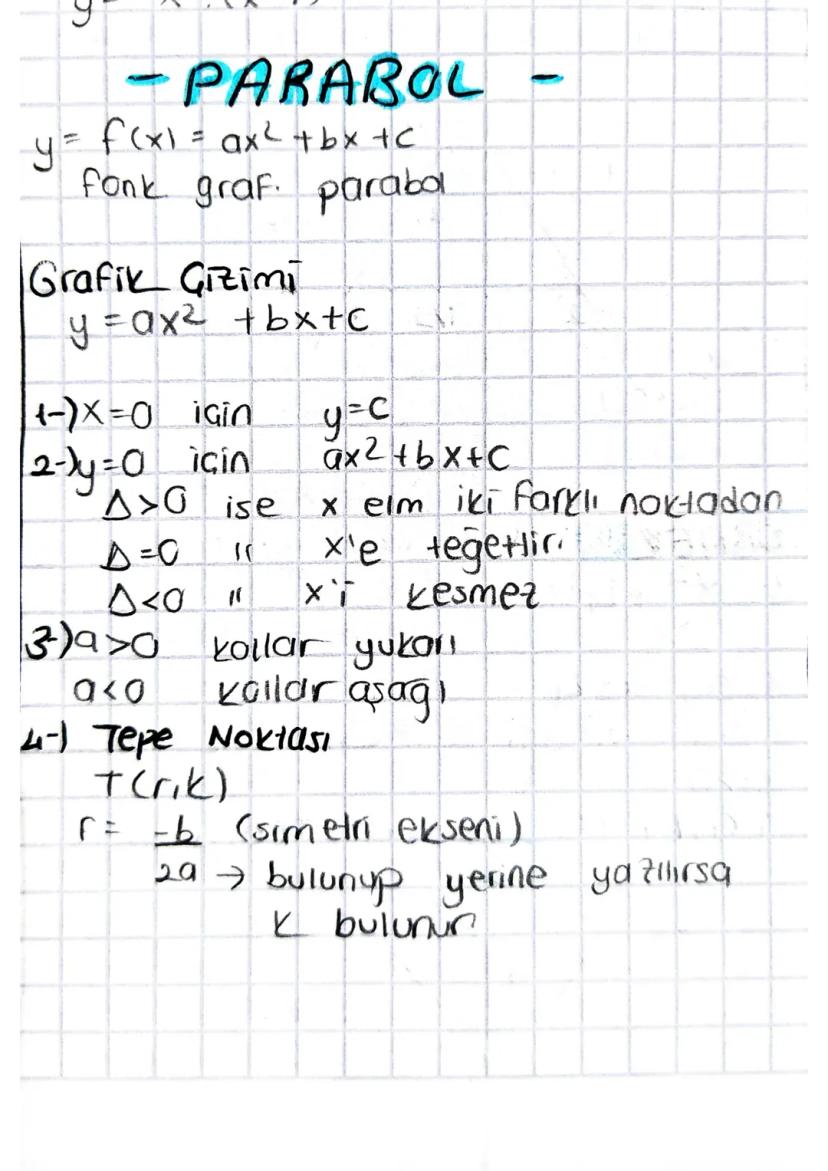 - PARABOL -
y = f(x) = ax² + bx + c
fonk graf. parabol
Grafik Çizimi
y = ax² + bx + c
1-) x = 0 için y = c
2-) y = 0 için ax² + bx + c
Δ > 0 ise x elm iki farklı noktadan
Δ = 0 " x'e teğettir.
Δ < 0 " x'i kesmez
3-) a > 0 kollar yukarı
a < 0 kollar aşağı
4-) Tepe Noktası
T(r,k)
r = -b/2a (simetri ekseni)
→ bulunup yerine yazılırsa
k bulunur